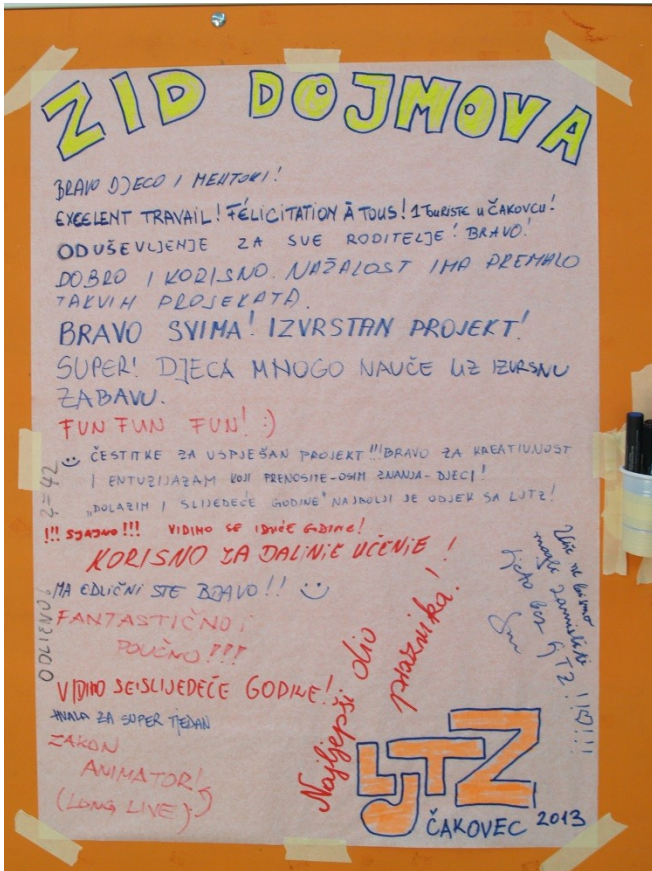 ZID DOJMOVA
BRAVO DJECO I MENTORI!
EXCELENT TRAVAIL! FÉLICITATION À TOUS! 1 TOURISTE U ČAKOVCU!
ODUŠEVLJENJE ZA SVE RODITELJE! BRAVO!
DOBRO I KORISNO. NAŽALOST IMA PREMALO
TAKVIH PROJEKATA.
BRAVO SVIMA! IZVRSTAN PROJEKT!
SUPER! DJECA MNOGO NAUČE UZ IZVRSNU
ZABAVU.
FUN FUN FUN! :)
ČESTITKE ZA USPJEŠAN PROJEKT!!! BRAVO ZA KREATIVNOST
I ENTUZIJAZAM KOJI PRENOSITE-OSIM ZNANJA-DJECI!
"DOLAZIM I SLIJEDEĆE GODINE" NAJBOLJI JE ODJEK SA LJTZ!
!!! SJAJNO!!! VIDIMO SE IDUĆE GODINE!
KORISNO ZA DALJNJE UČENJE!
MA EDLIČNI STE BRAVO!!
FANTASTIČNO I
POUČNO!!!
VIDIMO SE SLIJEDEĆE GODINE!
HVALA ZA SUPER TJEDAN
ZAKON
ANIMATOR!
(LONG LIVE)
ODLIČNO!
2=42
Najljepši dio
praznika!
Više ne bismo
mogli zamisliti
ljeto bez LJTZ!!!
LJTZ
ČAKOVEC 2013